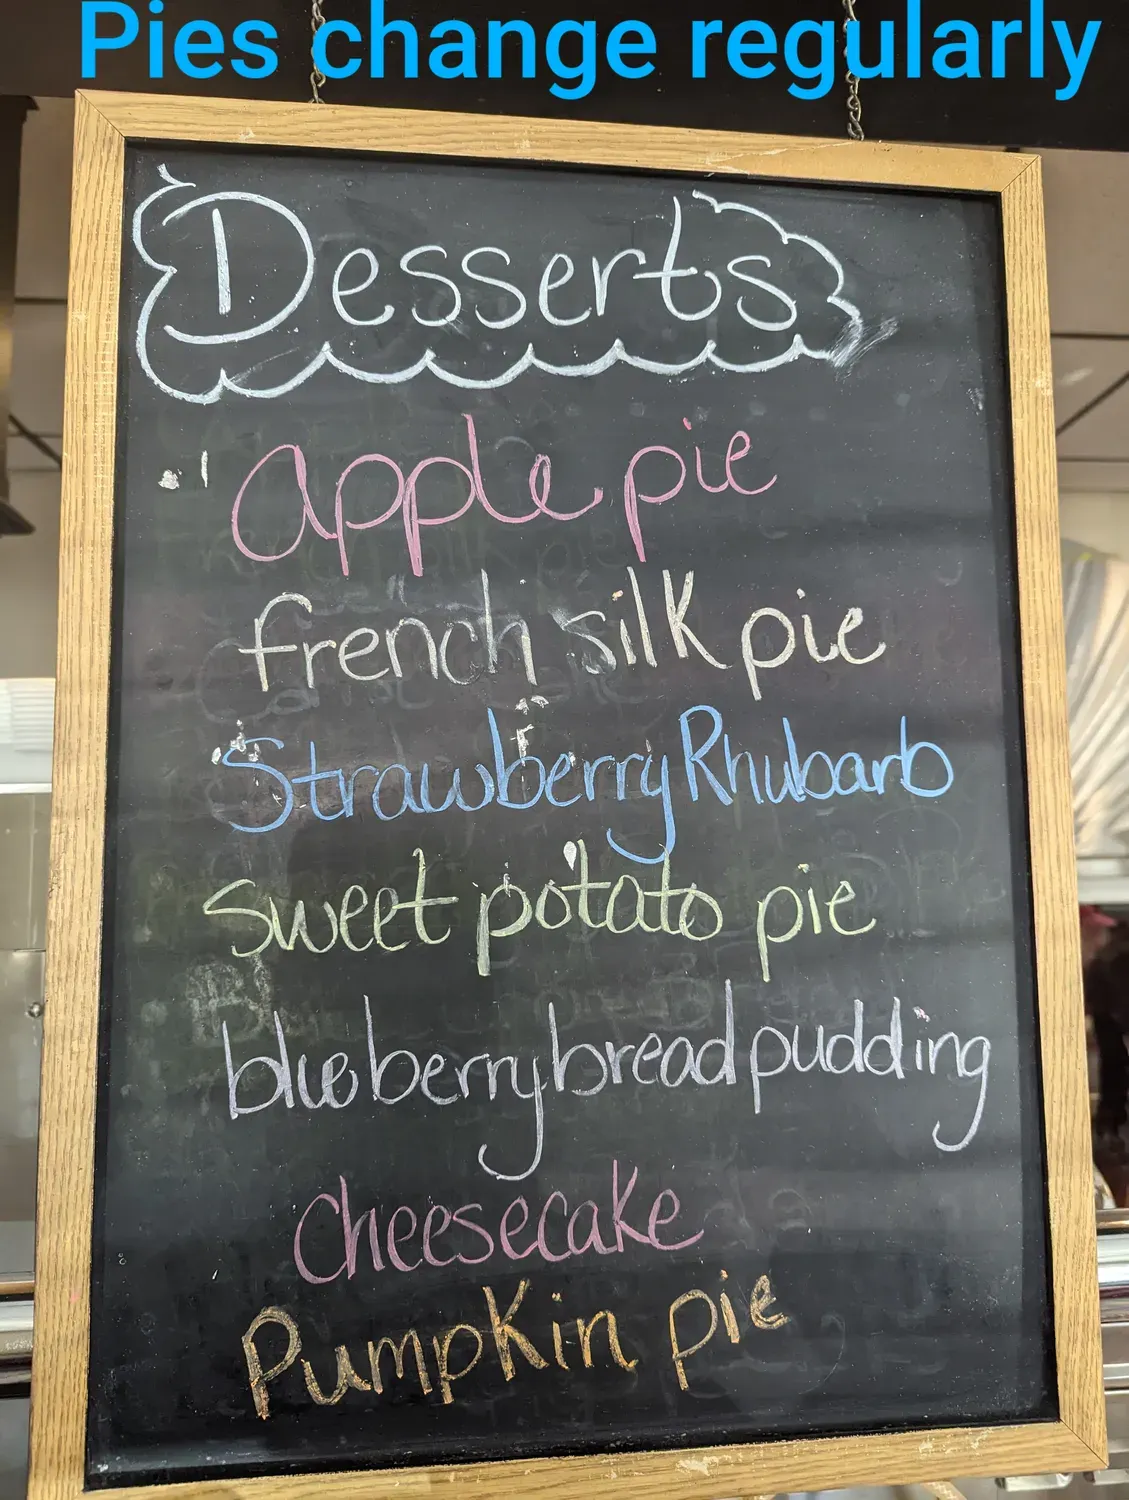 Pies change regularly
Desserts
apple pie
french silk pie
Strawberry Rhubarb
sweet potato pie
blueberry bread pudding
Cheesecake
Pumpkin pie